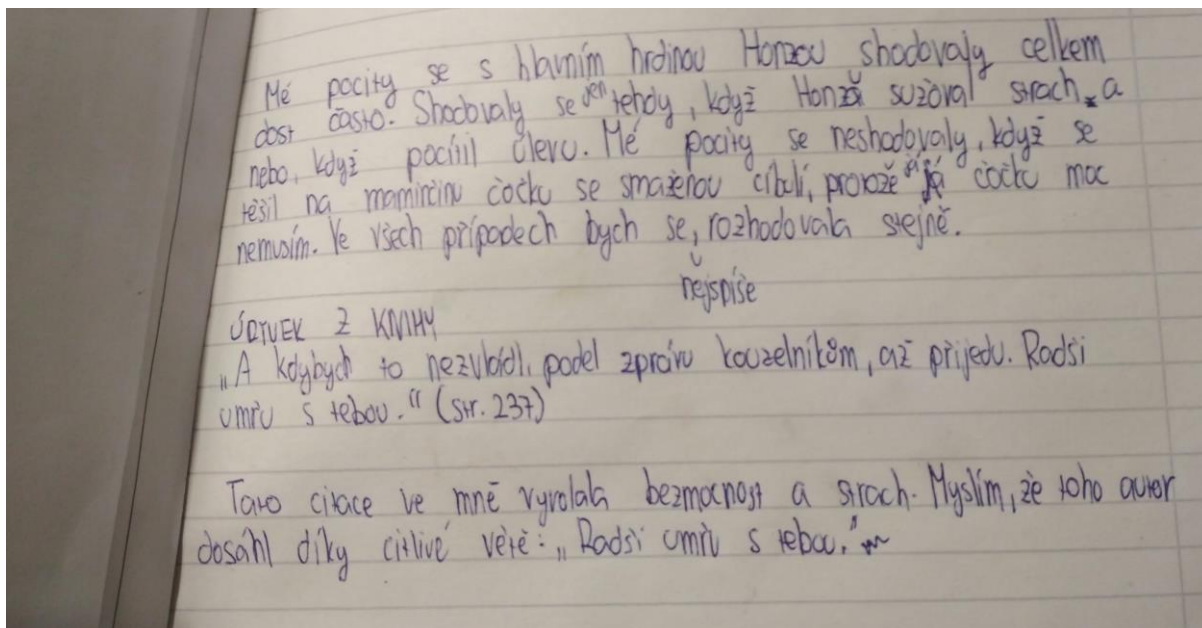 Mé pocity se s hlavním hrdinou Honzou shodovaly celkem
dost často. Shodovaly se jen tehdy, když Honzu sužoval strach a
nebo, když pocítil úlevu. Mé pocity se neshodovaly, když se
těšil na maminčinu čočku se smaženou cibulí, protože já čočku moc
nemusím. Ve všech případech bych se, rozhodovala stejně.
nejspíše
ÚRYVEK Z KNIHY
„A kdybych to nezvládl, podej zprávu kouzelníkům, až přijedu. Radši
umřu s tebou." (str. 237)
Tato citace ve mně vyvolala bezmocnost a strach. Myslím, že toho autor
dosáhl díky citlivé větě: „Radši umřu s tebou."